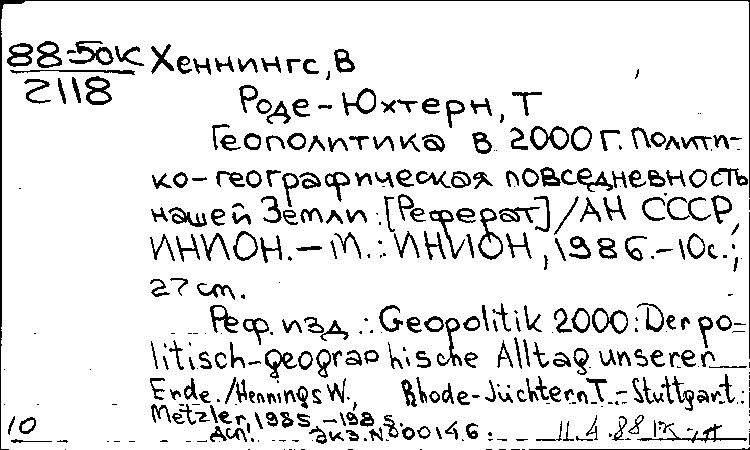 88-50К
2118
Хеннингс, В
Роде-Юхтерн, Т
Геополитика в 2000 г. Полити-
ко-географическая повседневность
нашей Земли: [Реферат] / АН СССР,
ИНИОН. – М.: ИНИОН, 1986. – 10с.;
27 cm.
Реф. изд.: Geopolitik 2000: Der po-
litisch-geographische Alltag unserer
Erde. / Hennings W., Rhode-Jüchtern T. – Stuttgart:
Metzler, 1985. – 198 s.
10
Деп. экз. N 800146.
11.4.88